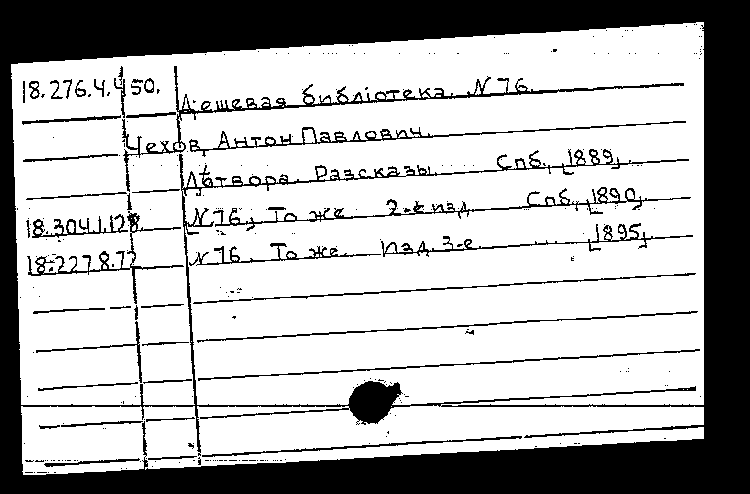 18.276.4.450. Дешевая библіотека. N 76.
Чехов, Антон Павлович.
Дѣтвора. Разсказы. Спб., [1889].
18.304.1.128. N 76. То же. 2-е изд. Спб., [1890].
18.227.8.77 N 76. То же. Изд. 3-е. ... [1895].